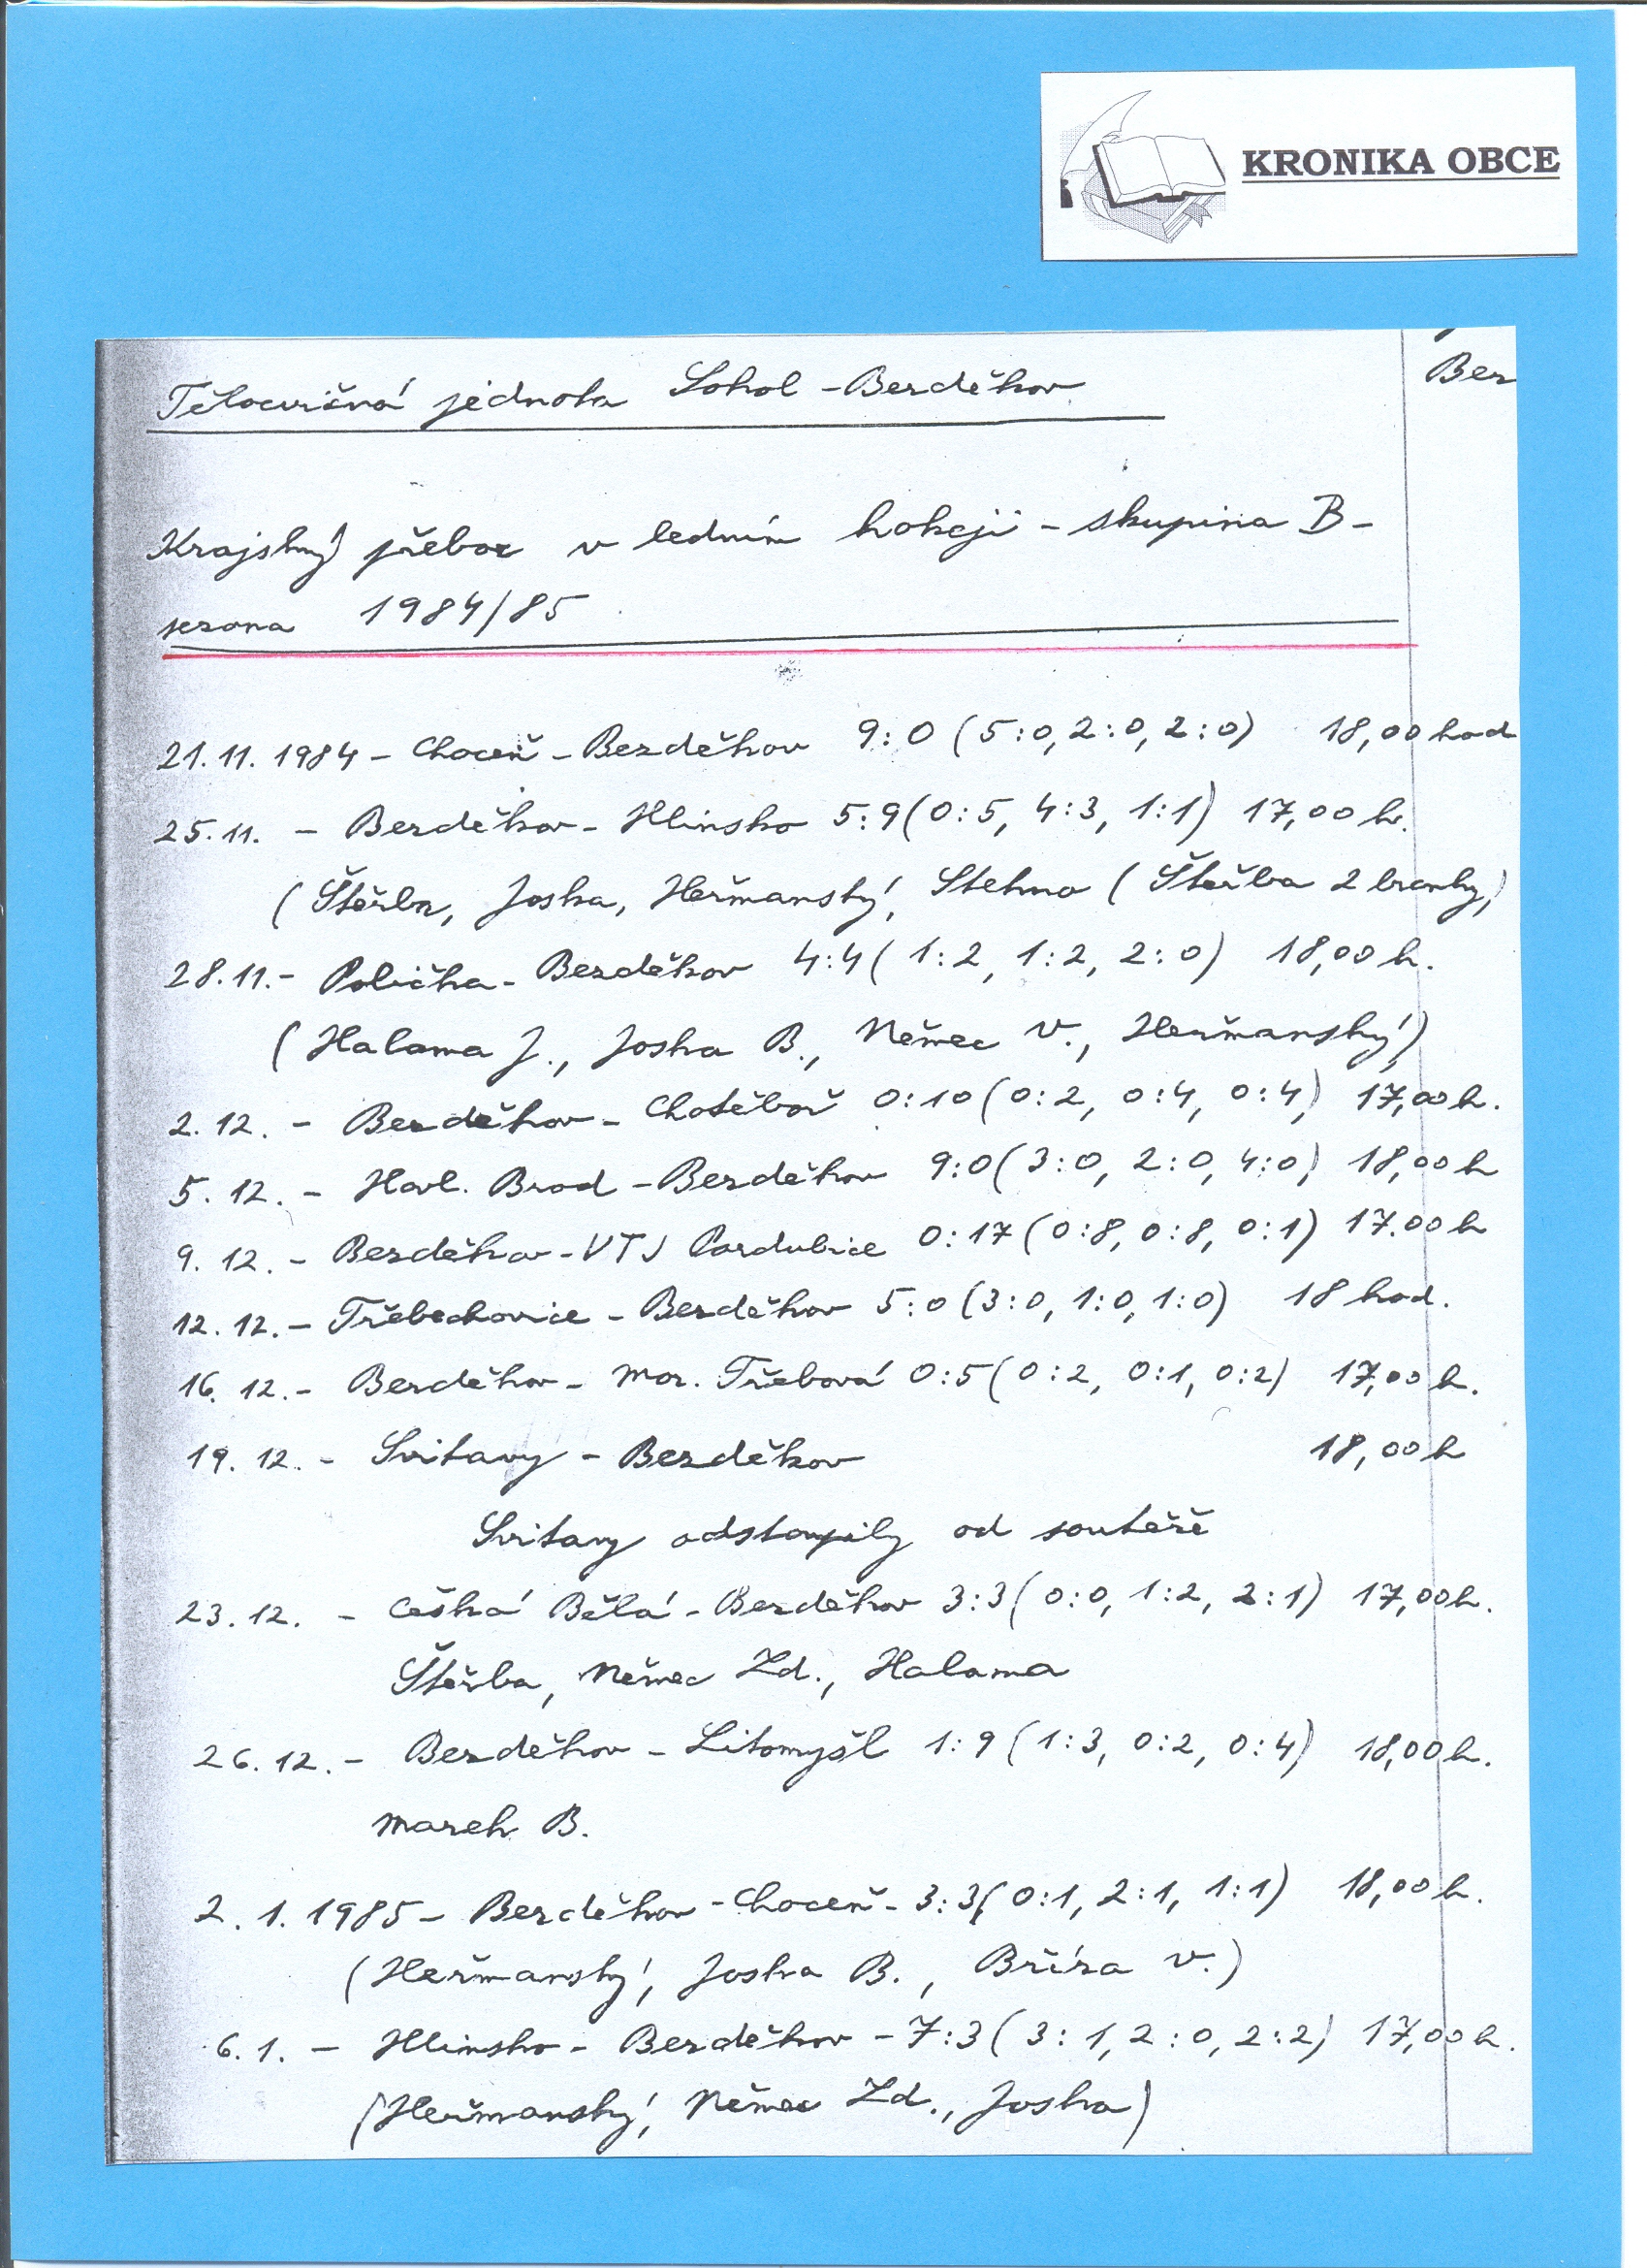 KRONIKA OBCE
Tělocvičná jednota Sokol - Bezděkov
Bez
Krajský přebor v ledním hokeji - skupina B -
sezona 1984/85
21.11.1984 - Choceň - Bezděkov 9:0 (5:0, 2:0, 2:0) 18,00 hod
25.11. - Bezděkov - Hlinsko 5:9 (0:5, 4:3, 1:1) 17,00 h.
(Štěrba, Joska, Heřmanský, Stehno (Štěrba 2 branky)
28.11. - Polička - Bezděkov 4:4 (1:2, 1:2, 2:0) 18,00 h.
(Halama J., Joska B., Němec V., Heřmanský)
2.12. - Bezděkov - Chotěboř 0:10 (0:2, 0:4, 0:4) 17,00 h.
5.12. - Havl. Brod - Bezděkov 9:0 (3:0, 2:0, 4:0) 18,00 h
9.12. - Bezděkov - VTJ Pardubice 0:17 (0:8, 0:8, 0:1) 17.00 h
12.12. - Třebechovice - Bezděkov 5:0 (3:0, 1:0, 1:0) 18 hod.
16.12. - Bezděkov - Mor. Třebová 0:5 (0:2, 0:1, 0:2) 17,00 h.
19.12. - Svitavy - Bezděkov 18,00 h
Svitavy odstoupily od soutěže
23.12. - Česká Bělá - Bezděkov 3:3 (0:0, 1:2, 2:1) 17,00 h.
Štěrba, Němec Zd., Halama
26.12. - Bezděkov - Litomyšl 1:9 (1:3, 0:2, 0:4) 18,00 h.
Marek B.
2.1.1985 - Bezděkov - Choceň - 3:3 (0:1, 2:1, 1:1) 18,00 h.
(Heřmanský, Joska B., Bříza V.)
6.1. - Hlinsko - Bezděkov - 7:3 (3:1, 2:0, 2:2) 17,00 h.
(Heřmanský, Němec Zd., Joska)